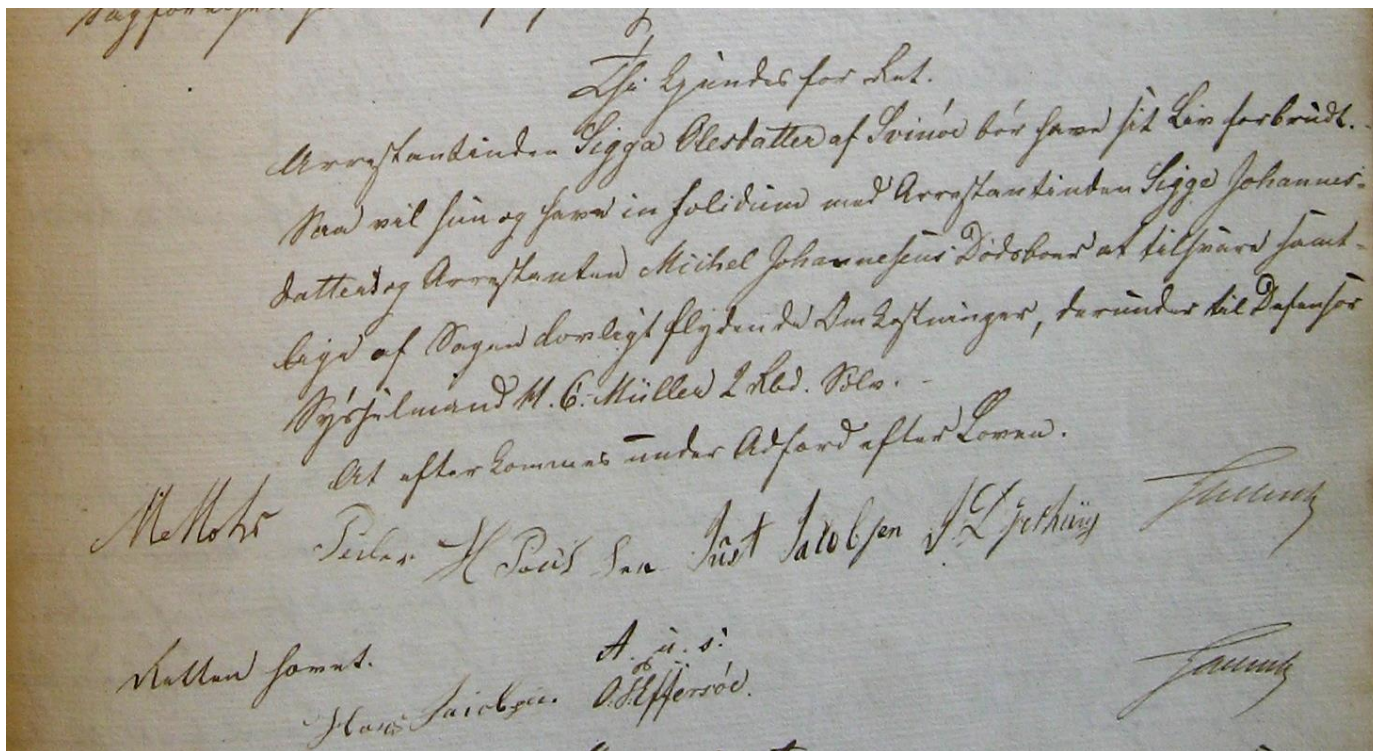 Thi kjendes for Ret.
Arrestantinden Sigga Olesdatter af Svinöe bör have sit Liv forbrudt.
Saa vil hun og have in solidum med Arrestantinden Sigge Johannes-
datter og Arrestanten Michel Johannesens Dödsboer at tilsvare samt-
lige af Sagen lovligt flydende Omkostninger, derunder til Defensor
Sysselmand H. C. Müller 2 Rbd. Sölv.
At efterkommes under Adfærd efter Loven.
Peder H Poulsen Just Jacobsen
Retten hævet.
A. u. s.
Hans Jacobsen. Effersöe.